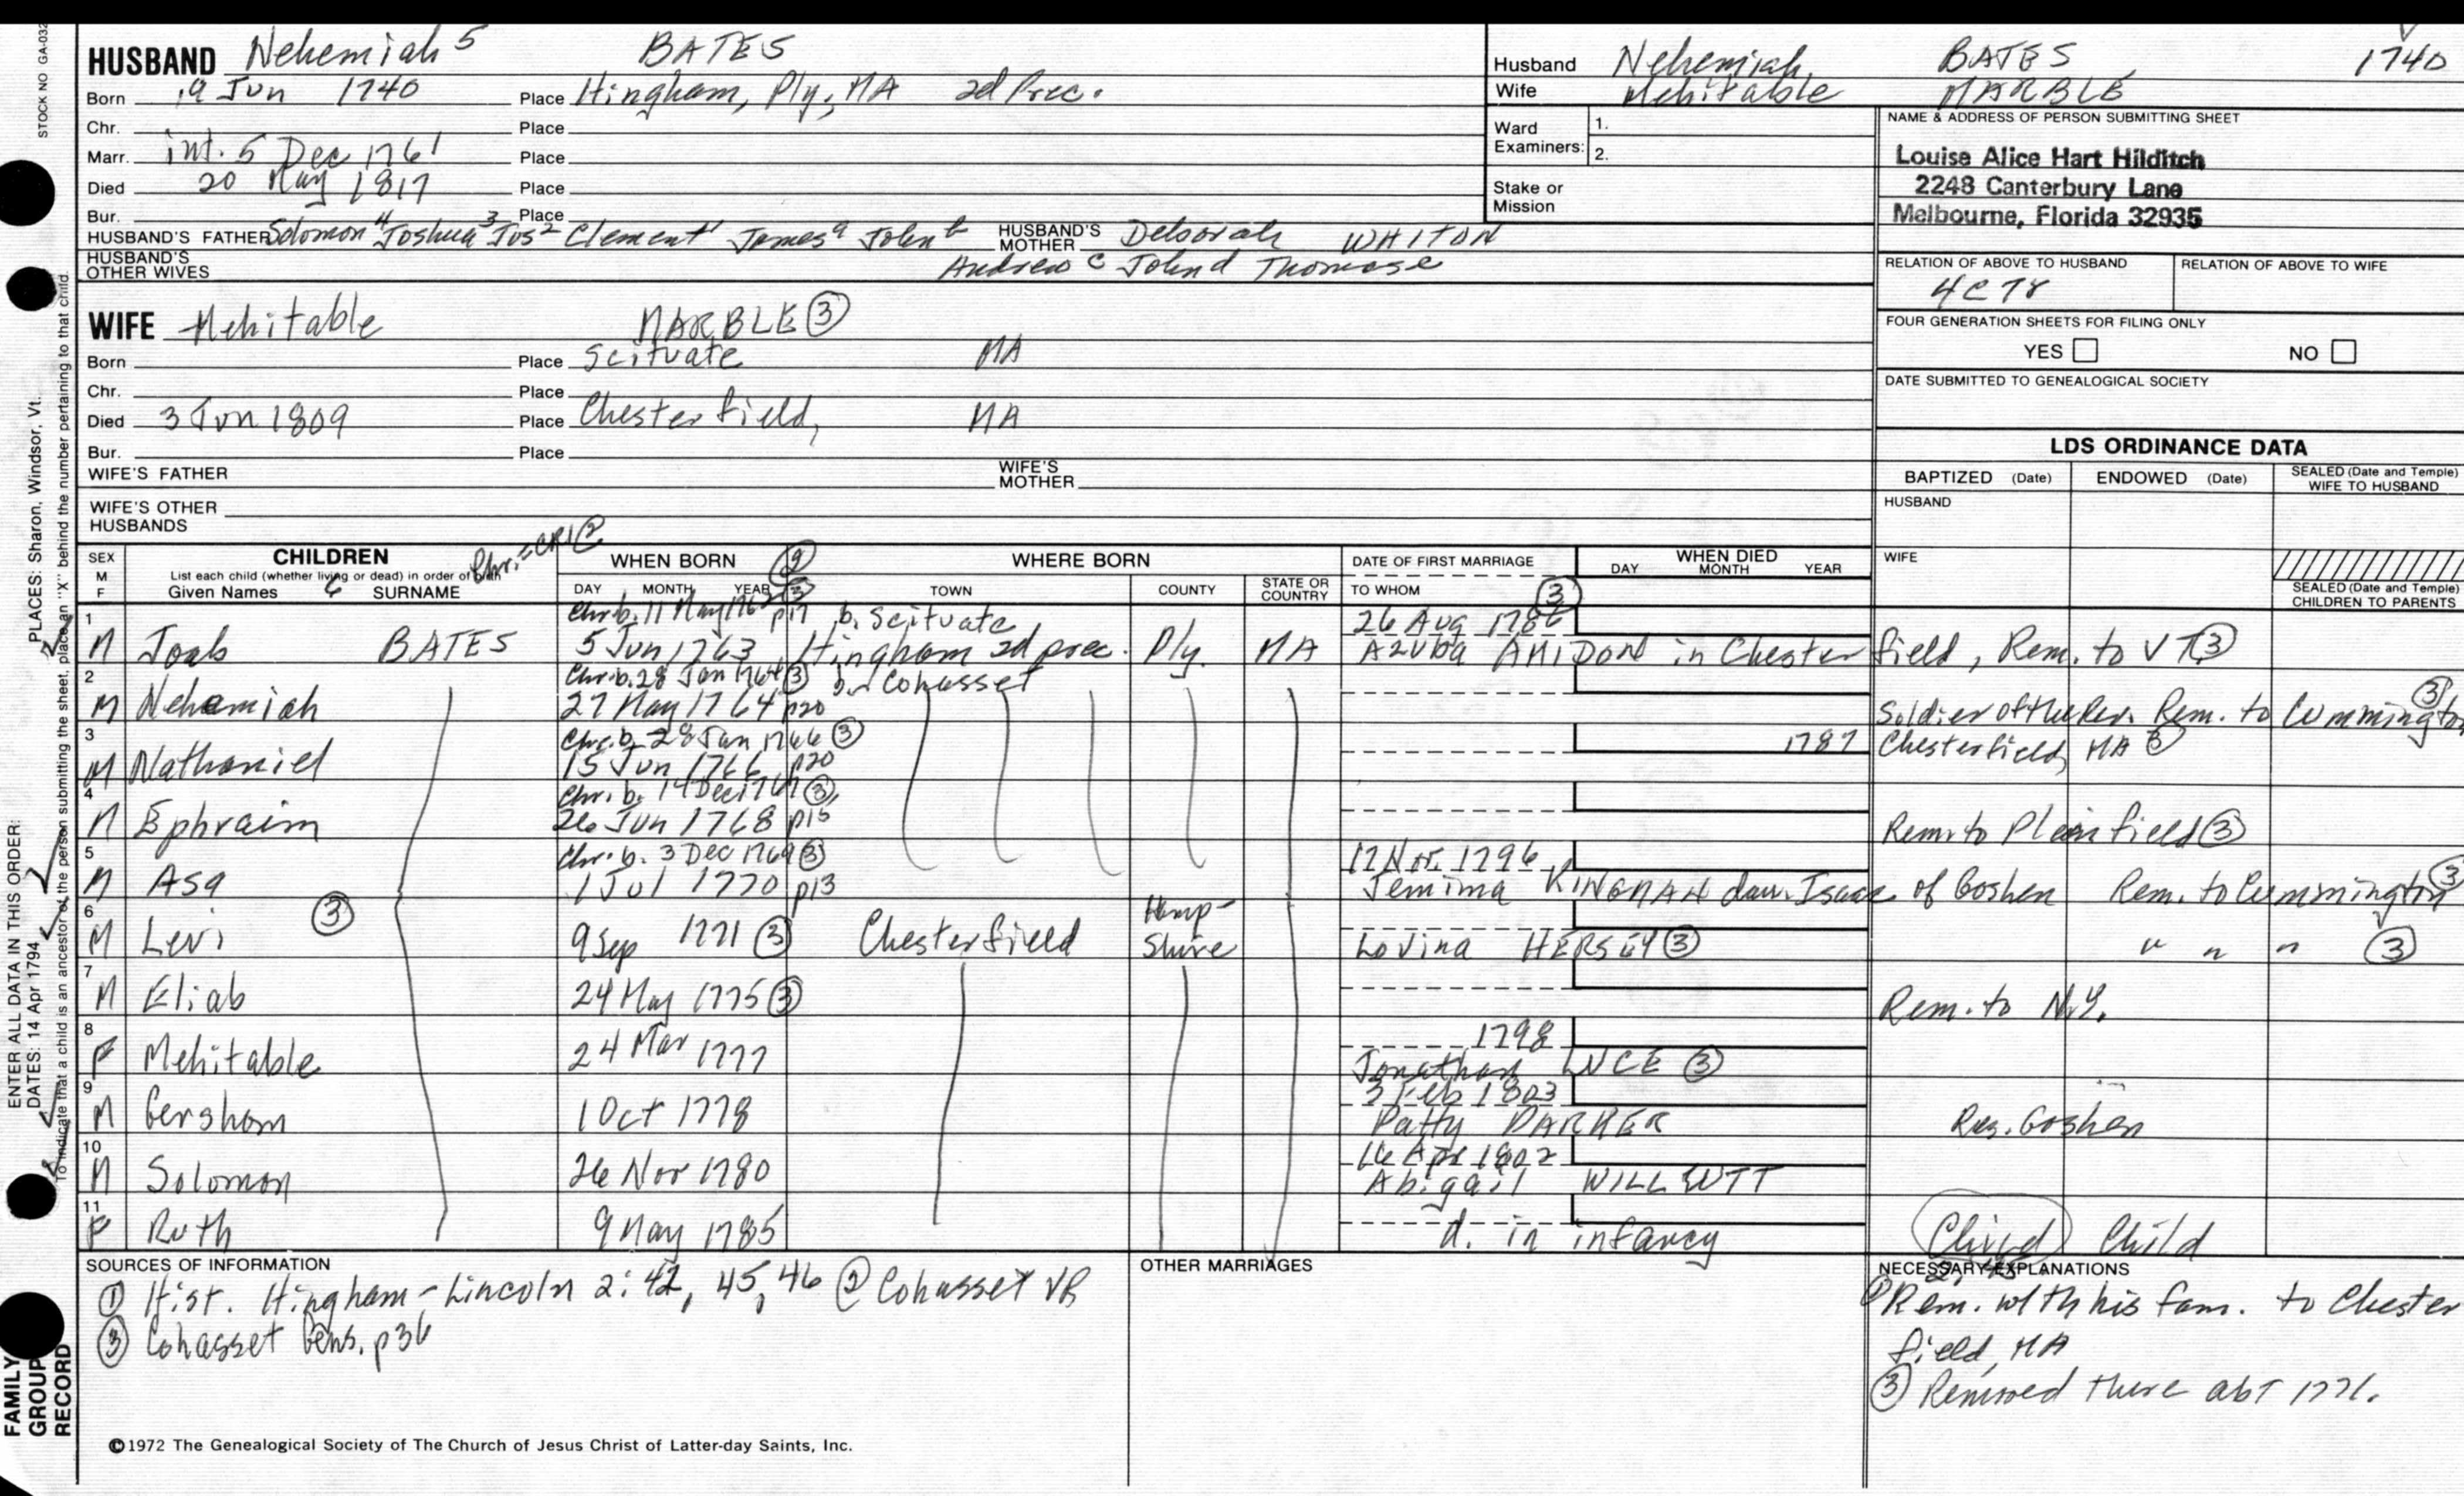 STOCK NO GA-032
HUSBAND Nehemiah 5 BATES
Born 19 Jun 1740 Place Hingham, Ply, MA 2d Prec.
Chr. Place
Marr. int. 5 Dec 1761 Place
Died 20 May 1817 Place
Bur. Place
HUSBAND'S FATHER Solomon 4 Joshua 3 Jos 2 Clement 1 James a John b HUSBAND'S MOTHER Deborah WHITON
HUSBAND'S OTHER WIVES Andrew c John d Thomas e
Husband Nehemiah BATES 1740
Wife Mehitable MARBLE
Ward Examiners: 1.
2.
Stake or Mission
NAME & ADDRESS OF PERSON SUBMITTING SHEET
Louise Alice Hart Hilditch
2248 Canterbury Lane
Melbourne, Florida 32935
RELATION OF ABOVE TO HUSBAND RELATION OF ABOVE TO WIFE
4C7r
FOUR GENERATION SHEETS FOR FILING ONLY
YES NO
DATE SUBMITTED TO GENEALOGICAL SOCIETY
WIFE Mehitable MARBLE ③
Born Place Scituate MA
Chr. Place
Died 3 Jun 1809 Place Chesterfield, MA
Bur. Place
WIFE'S FATHER WIFE'S MOTHER
WIFE'S OTHER HUSBANDS
LDS ORDINANCE DATA
BAPTIZED (Date) ENDOWED (Date) SEALED (Date and Temple) WIFE TO HUSBAND
HUSBAND
WIFE
SEALED (Date and Temple) CHILDREN TO PARENTS
SEX M F CHILDREN Chr. = CR1 ② WHEN BORN ② WHERE BORN DATE OF FIRST MARRIAGE WHEN DIED DAY MONTH YEAR
List each child (whether living or dead) in order of birth
Given Names SURNAME DAY MONTH YEAR TOWN COUNTY STATE OR COUNTRY TO WHOM ③
Chr. b. 11 May 1762 p17 b. Scituate 26 Aug 1786
1 M Joab BATES 5 Jun 1763 Hingham 2d prec. Ply. MA Azuba AMIDON in Chesterfield, Rem. to VT ③
Chr. b. 28 Jan 1764 ③ b. Cohasset
2 M Nehemiah 27 May 1764 p20 Soldier of the Rev. Rem. to Cummington ③
Chr. b. 28 Jan 1766 ③ 1787 Chesterfield, MA ③
3 M Nathaniel 15 Jun 1766 p20
Chr. b. 14 Dec 1767 ③
4 M Ephraim 26 Jun 1768 p15 Rem. to Plainfield ③
Chr. b. 3 Dec 1769 ③ 17 Nov. 1796
5 M Asa 1 Jul 1770 p13 Jemima KINGMAN dau. Isaac of Goshen Rem. to Cummington ③
6 M Levi ③ 9 Sep 1771 ③ Chesterfield Hampshire Lovina HERSEY ③ " " " ③
7 M Eliab 24 May 1775 ③ Rem. to N.Y.
1798
8 F Mehitable 24 Mar 1777 Jonathan LUCE ③
3 Feb 1803
9 M Gershom 1 Oct 1778 Patty PARKER Res. Goshen
16 Apr 1802
10 M Solomon 26 Nov 1780 Abigail WILLCUTT
11 F Ruth 9 May 1785 d. in infancy Child
SOURCES OF INFORMATION
① Hist. Hingham - Lincoln 2: 42, 45, 46 ② Cohasset VR
③ Cohasset Gens. p36
OTHER MARRIAGES
NECESSARY EXPLANATIONS
① Rem. with his fam. to Chesterfield, MA
③ Removed there abt 1771.
©1972 The Genealogical Society of The Church of Jesus Christ of Latter-day Saints, Inc.
FAMILY GROUP RECORD
ENTER ALL DATA IN THIS ORDER:
DATES: 14 Apr 1794
PLACES: Sharon, Windsor, Vt.
To indicate that a child is an ancestor of the person submitting the sheet, place an "X" behind the number pertaining to that child.